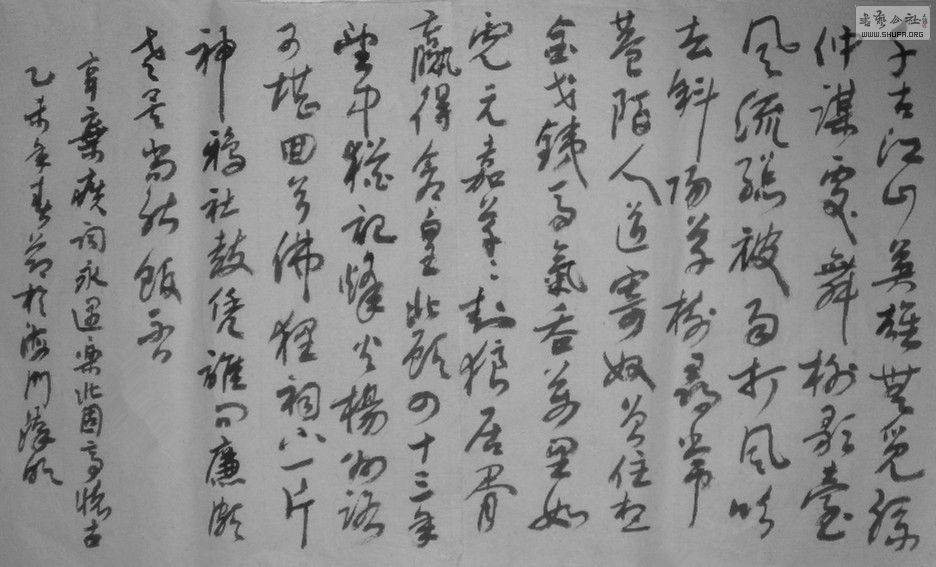 千古江山英雄無覓孫
仲謀處舞榭歌臺
風流總被雨打風吹
去斜陽草樹尋常
巷陌人道寄奴曾住想
金戈鐵馬氣吞萬里如
虎元嘉草々封狼居胥
贏得倉皇北顧四十三年
望中猶記烽火楊州路
可堪回首佛狸祠下一片
神鴉社鼓憑誰問廉頗
老矣尚能飯否
辛棄疾詞永遇樂北固亭懷古
乙未年春節於海門
書藝公社
WWW.SHUFA.ORG